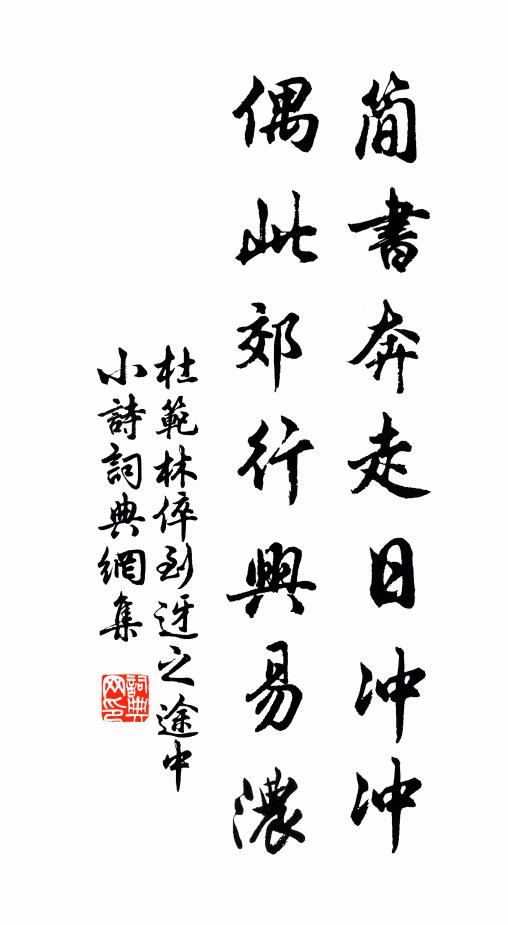 简書奔走日冲冲
偶此郊行興易濃
杜範林倅到迓之途中
小詩詞典網集
詞典网印